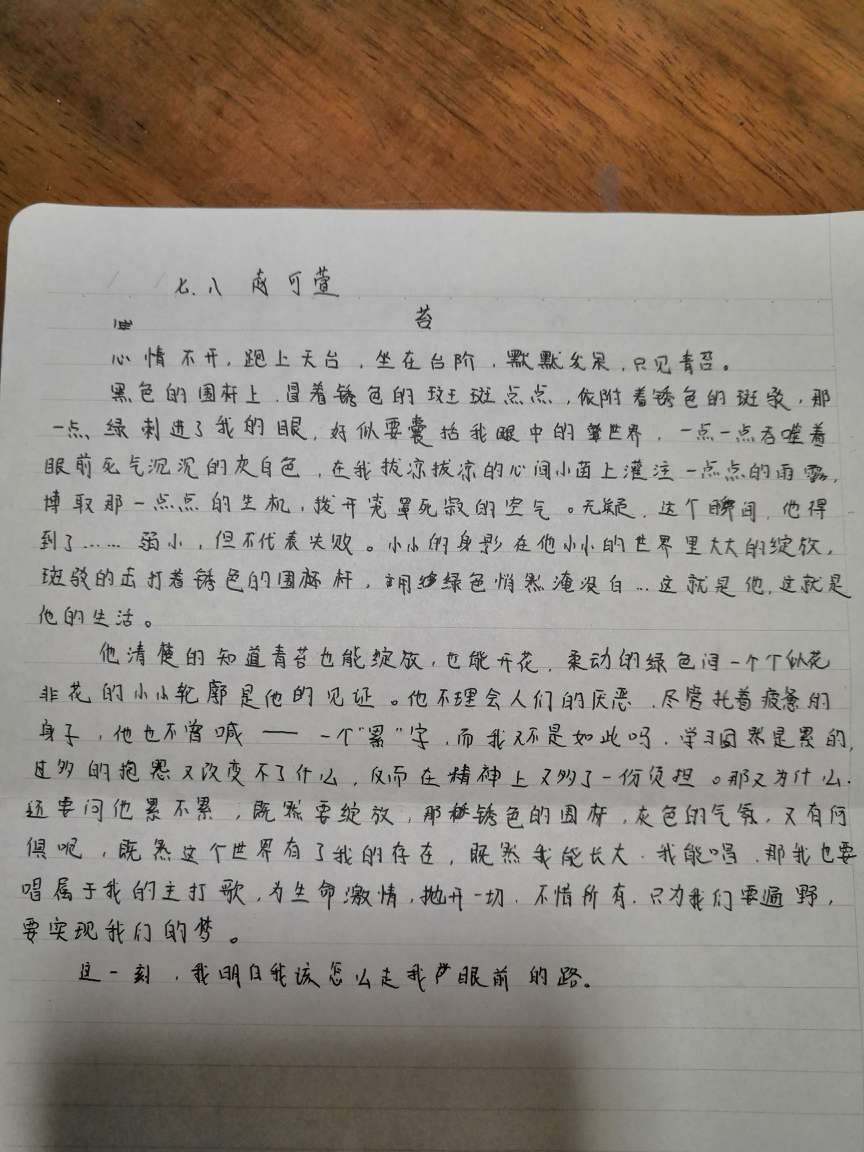 七.八 可萱
苔
心情不开，跑上天台，坐在台阶，默默发呆，只见青苔。
黑色的围杆上，冒着锈色的斑斑点点，依附着锈色的斑驳，那
一点绿刺进了我的眼，好似要囊括我眼中的世界，一点一点吞噬着
眼前死气沉沉的灰白色，在我拔凉拔凉的心间小苗上灌注一点点的雨露，
博取那一点点的生机，拨开笼罩死寂的空气。无疑，这个瞬间，他得
到了……弱小，但不代表失败。小小的身影在他小小的世界里大大的绽放，
斑驳的击打着锈色的围杆，用绿色悄然淹没白…这就是他，这就是
他的生活。
他清楚的知道青苔也能绽放，也能开花，柔动的绿色间一个个似花
非花的小小轮廓是他的见证。他不理会人们的厌恶，尽管托着疲惫的
身子，他也不曾喊——一个“累”字，而我又不是如此吗，学习固然是累的，
过多的抱怨又改变不了什么，反而在精神上又多了一份负担。那又为什么
还要问他累不累，既然要绽放，那锈色的围杆，灰色的气氛，又有何
惧呢，既然这个世界有了我的存在，既然我能长大，我能唱，那我也要
唱属于我的主打歌，为生命激情，抛开一切，不惜所有，只为我们要遍野，
要实现我们的梦。
这一刻，我明白我该怎么走我眼前的路。